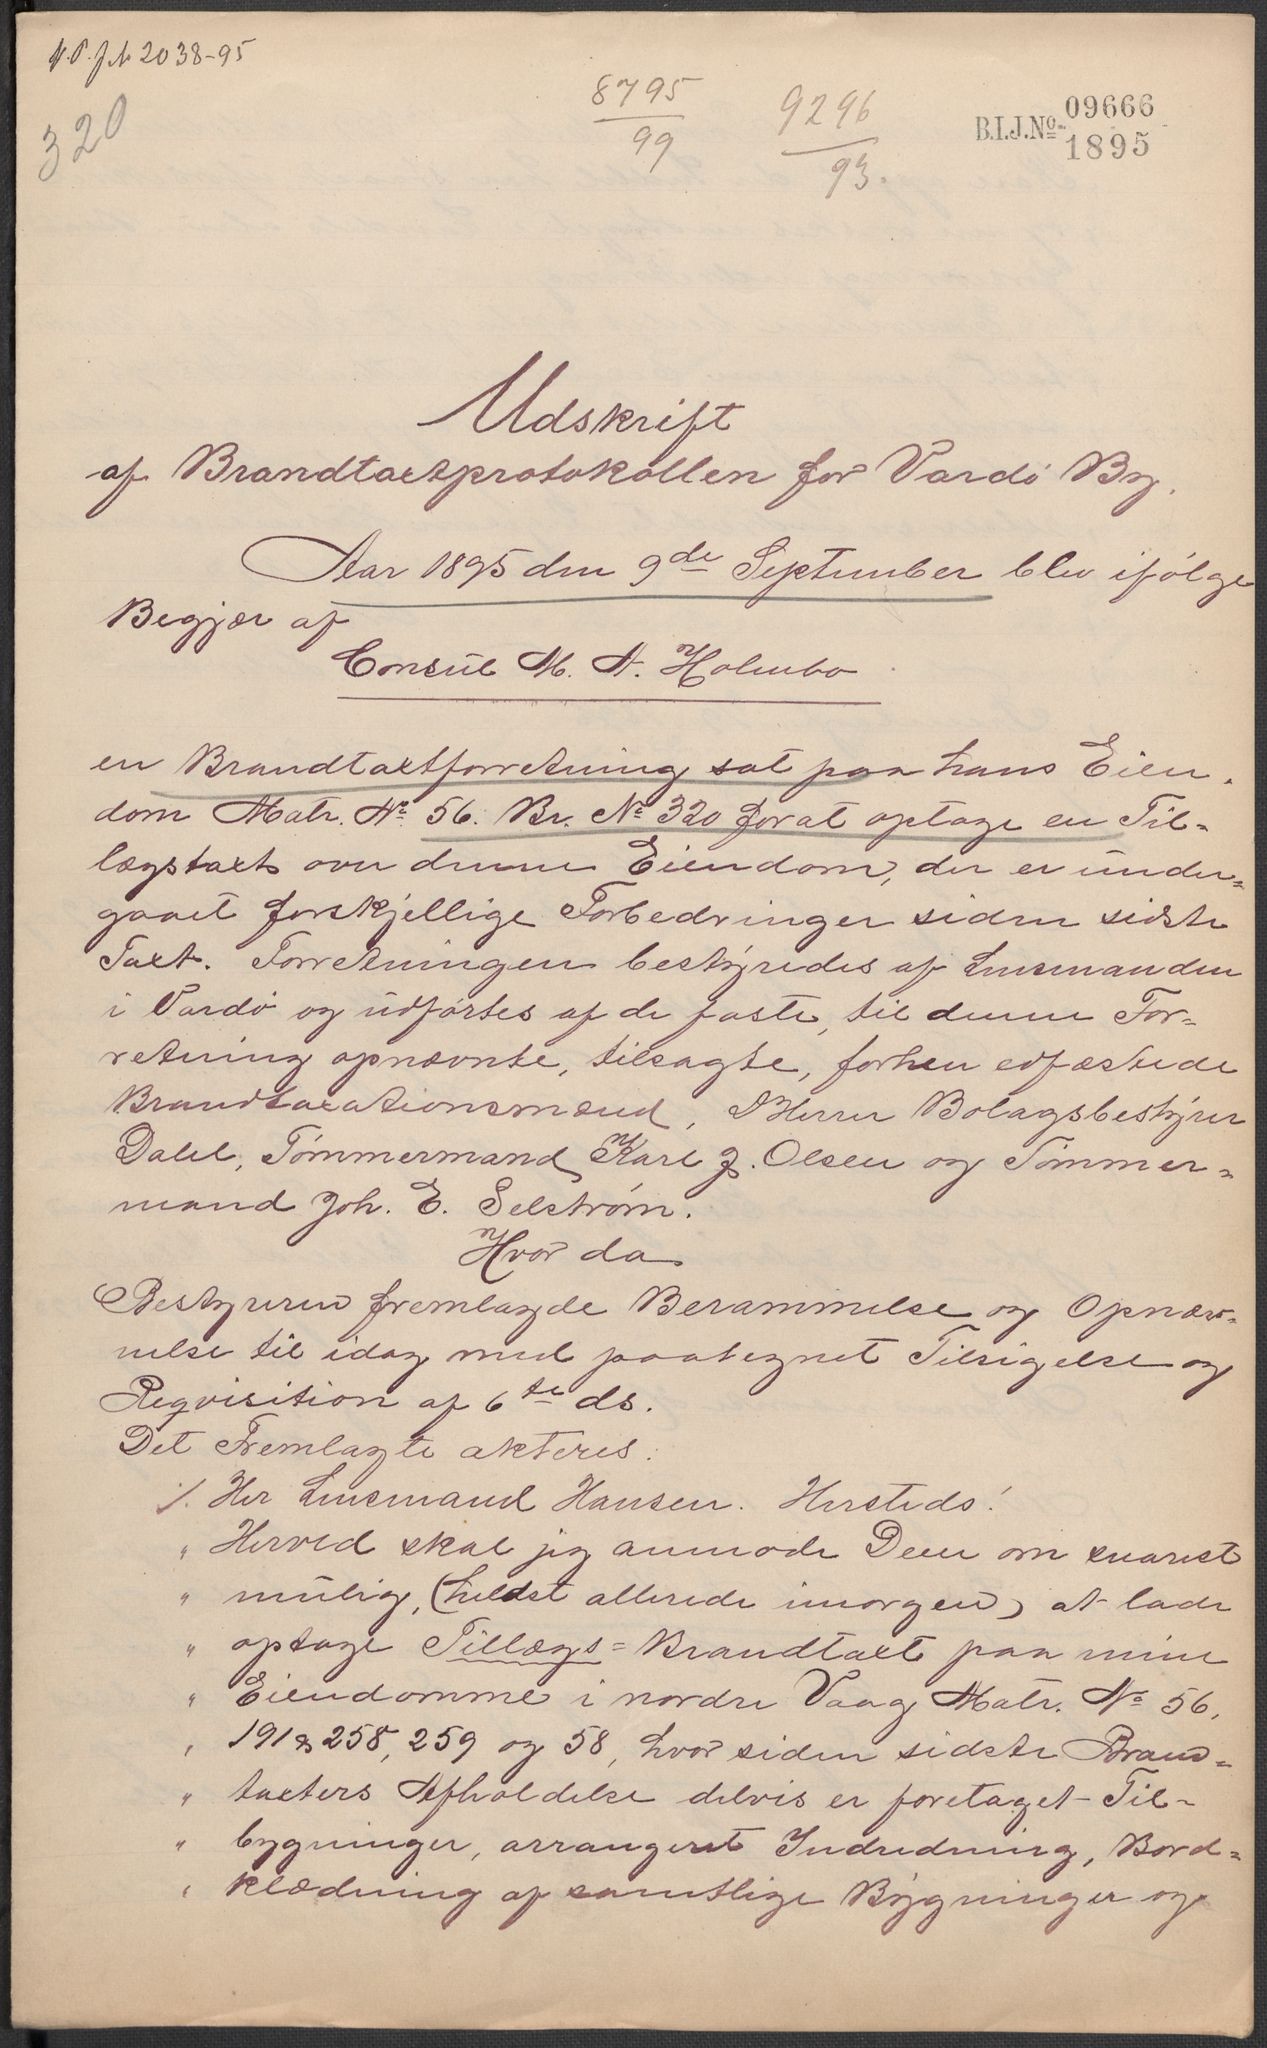 N.P. J№ 2038-95
320
8795
99
9296
93.
B.I.J.No. 09666
1895
Udskrift
af Brandtaxtprotokollen for Vardö By.
Aar 1895 den 9de September blev ifölge
Begjær af
Consul M. A. Holmbo
en Brandtaxtforretning sat paa hans Eien-
dom Matr. № 56. Br. № 320 for at optage en Til-
lægstaxt over denne Eiendom, der er under-
gaaet forskjellige Forbedringer siden sidste
Taxt. Forretningen bestyredes af Lensmanden
i Vardö og udförtes af de faste, til denne For-
retning opnævnte, tilsagte, forhen edfæstede
Brandtaxationsmænd, DHerrer Bolagsbestyrer
Dahl, Tömmermand Karl J. Olsen og Tömmer-
mand Joh. E. Selström.
Hvor da
Bestyreren fremlagde Berammelse og Opnæv-
nelse til idag med paategnet Tilsigelse og
Reqvisition af 6te ds.
Det Fremlagte akteres:
%. Her Lensmand Hansen. Hersteds!
" Herved skal jeg anmode Dem om snarest
" mulig, (heldst allerede imorgen) at lade
" optage Tillægs-Brandtaxt paa mine
" Eiendomme i nordre Vaag Matr. № 56,
" 191 & 258, 259 og 58, hvor siden sidste Brand-
" taxters Afholdelse delvis er foretaget Til-
" bygninger, arrangeret Indredning, Bord-
" klædning af samtlige Bygninger og